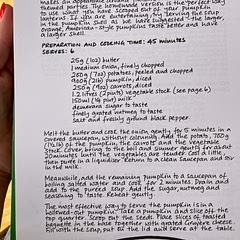 makes an appearance
formed porters. The homemade version is the perfect way
to use the flesh scooped out of your pumpkin
lanterns. If you are entertaining, try serving the soup
in the pumpkin shell as we have suggested – the larger,
orange, American-style pumpkins tend to have
a larger shell.
PREPARATION AND COOKING TIME: 45 MINUTES
SERVES: 6
25g (1oz) butter
1 medium onion, finely chopped
200g (7oz) potatoes, peeled and chopped
900g (2lb) pumpkin, diced
250g (9oz) carrots, diced
1.2 litres (2 pints) vegetable stock (see page 6)
150ml (¼ pint) milk
demerara sugar to taste
finely grated nutmeg to taste
salt and freshly ground black pepper
Melt the butter and cook the onion gently for 5 minutes in a
covered saucepan, without colouring. Add the potato, 700g
(1½lb) of the pumpkin, the carrot and the vegetable
stock. Cover, bring to the boil and simmer gently for about
20 minutes until the vegetables are tender. Cool a little,
then purée in a liquidiser. Return to a clean saucepan and stir
in the milk.
Meanwhile, add the remaining pumpkin to a saucepan of
boiling salted water and cook for 2 minutes. Drain and
add to the puréed soup. Add the sugar, nutmeg and
seasoning to taste. Reheat gently.
The most effective way to serve the pumpkin is in a
hollowed-out pumpkin. Take a pumpkin and slice off the
top quarter. Scoop out the seeds. Place slices of toasted
baguette in the base together with some grated cheese.
Fill with soup, put on the lid and serve at the table.